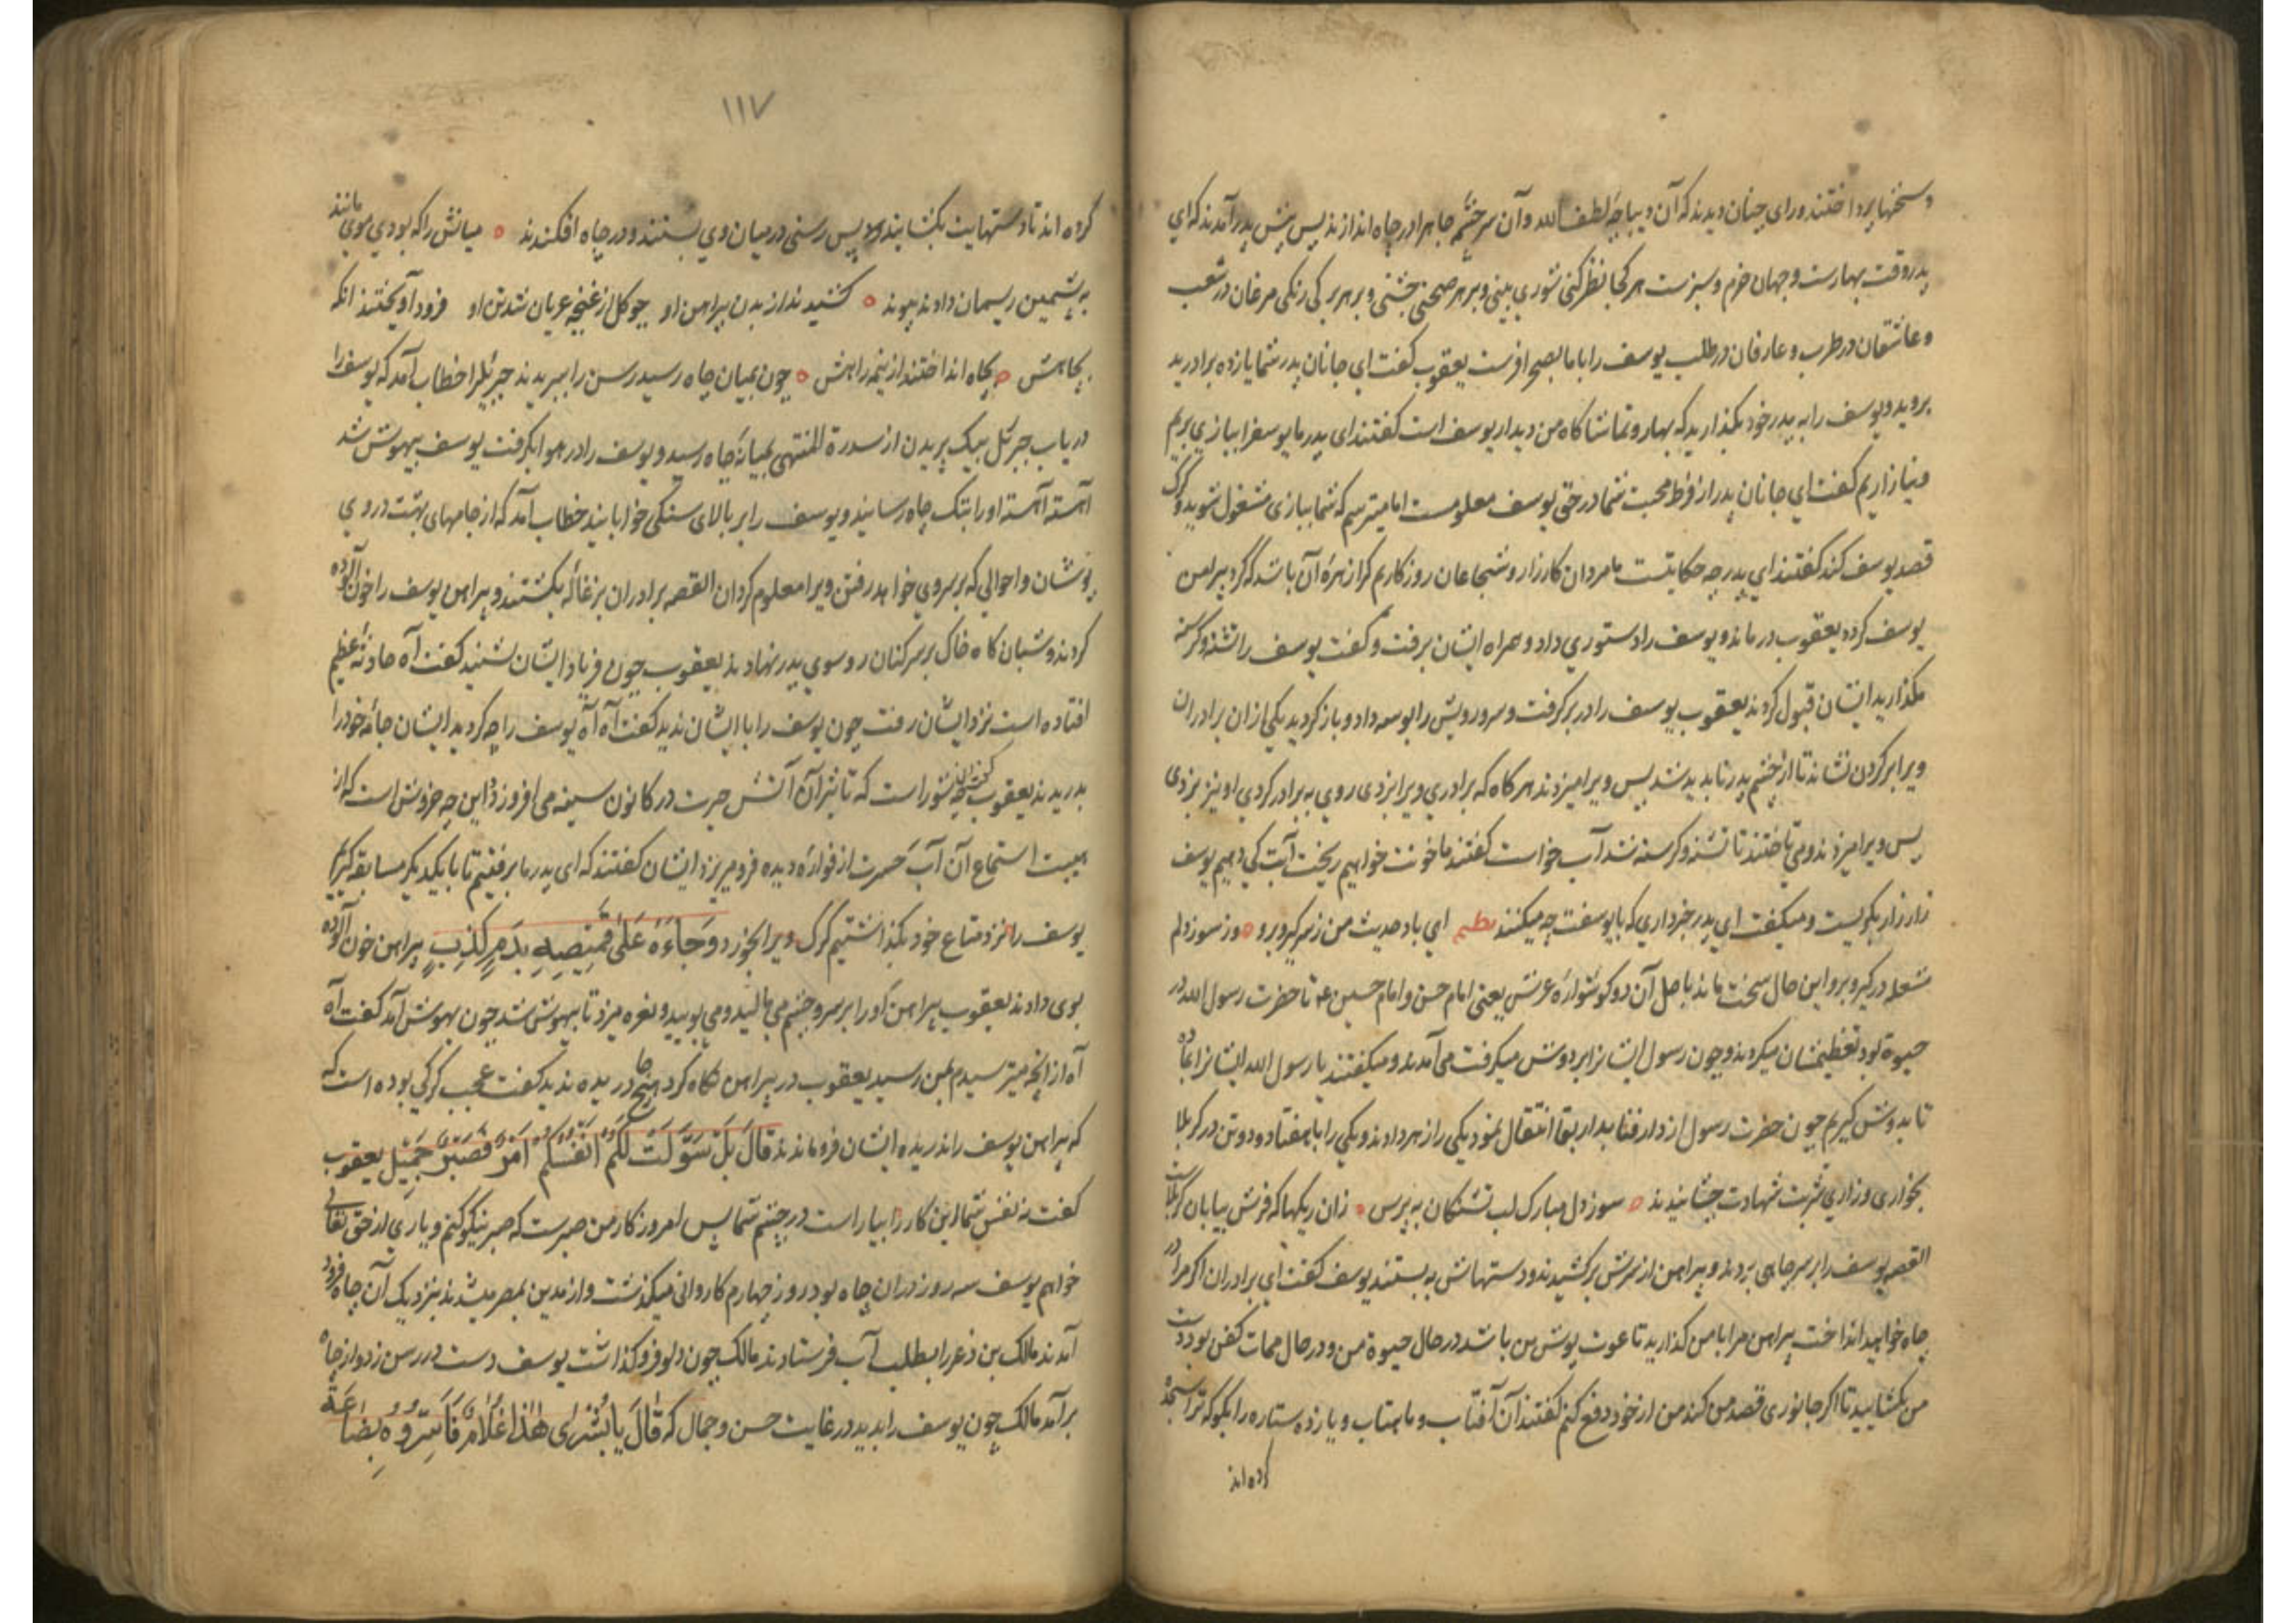 و سخنها پرداختند و رای چنان دیدند که آن دیباچهٔ لطف الله و آن سرچشمهٔ جاه را در چاه اندازند پس پیش پدر آمدند که ای
پدر وقت بهارست و جهان خرم و سبزست هر کجا نظر کنی شوری بینی و بر هر صحنی جشنی و بر هر برکی رنکی مرغان در شعب
و عاشقان در طرب و عارفان در طلب یوسف را با ما بصحرا فرست یعقوب کفت ای جانان پدر شما یازده برادرید
بروید و یوسف را به پدر خود بکذارید که بهار و تماشاکاه من دیدار یوسف است کفتند ای پدر ما یوسف را ببازی بریم
و نیازاریم کفت ای جانان پدر از فرط محبت شما در حق یوسف معلومست اما میترسم که شما ببازی مشغول شوید و کرک
قصد یوسف کند کفتند ای پدر چه حکایتست ما مردان کارزار و شجاعان روزکاریم کرک را زهرهٔ آن باشد که کرد پیراهن
یوسف کردد یعقوب درماند و یوسف را دستوری داد و همراه ایشان برفت و کفت یوسف را تشنه و کرسنه
مکذارید ایشان قبول کردند یعقوب یوسف را در بر کرفت و سر و رویش را بوسه داد و باز کردید یکی از ان برادران
ویرا بر کردن نشاند تا از چشم پدر ناپدید شد پس ویرا میزدند هر کاه که برادری ویرا بزدی روی به برادر کردی او نیز بزدی
پس ویرا میزدند و می تاختند تا تشنه و کرسنه شد آب خواست کفتند ما خونت خواهیم ریخت آبت کی دهیم یوسف
زار زار بکریست و میکفت ای پدر خبر داری که با یوسفت چه میکنند نظم ای باد حدیث من زمن کیر و برو وز سوز دلم
شعله در کیر و برو این حال سخت ماند باصل آن دو کوشوارهٔ عرش یعنی امام حسن و امام حسین ع تا حضرت رسول الله در
حیوة بود تعظیمشان میکردند و چون رسول ایشانرا بر دوش میکرفت می آمدند و میکفتند یا رسول الله ایشانرا بما ده
تا بدوش کیریم چون حضرت رسول از دار فنا بدار بقا انتقال نمود یکی را زهر دادند و یکی را با هفتاد و دو تن در کربلا
بخواری و زاری شربت شهادت چشانیدند سوز دل مبارک لب تشنکان بپرس زان ریکها که فرش بیابان کربلاست
القصه یوسف را بر سر چاهی بردند و پیراهن از سرش برکشیدند و دستهاش به بستند یوسف کفت ای برادران اکر مرا در
چاه خواهید انداخت پیراهن مرا با من کذارید تا عورت پوش من باشد در حال حیوة من و در حال ممات کفن بود و دست
من بکشایید تا اکر جانوری قصد من کند من از خود دفع کنم کفتند آن آفتاب و ماهتاب و یازده ستاره را بکو که ترا سجده
کرده اند
۱۱۷
کرده اند تا دستهایت بکشایند پس رسنی در میان وی بستند و در چاه افکندند میانش را که بودی موی مانند
به پشمین ریسمان دادند پیوند کشیدند از بدن پیراهن او چو کل از غنچه عریان شد تن او فرود آویختند انکه
بچاهش بچاه انداختند از نیمه راهش چون بمیان چاه رسید رسن را ببریدند جبرئیل را خطاب آمد که یوسف را
دریاب جبرئیل بیک پریدن از سدرة المنتهی بمیانهٔ چاه رسید و یوسف را در هوا بکرفت یوسف بیهوش شد
آهسته آهسته او را بتک چاه رسانید و یوسف را بر بالای سنکی خوابانید خطاب آمد که از جامهای بهشت در وی
پوشان و احوالی که بر سر وی خواهد رفتن ویرا معلوم کردان القصه برادران بزغاله بکشتند و پیراهن یوسف را خون آلوده
کردند و شبانکاه خاک بر سر کنان رو سوی پدر نهادند یعقوب چون فریاد ایشان شنید کفت آه حادثهٔ عظیم
افتاده است نزد ایشان رفت چون یوسف را با ایشان ندید کفت آه آه یوسف را چه کردید ایشان جامهٔ خود را
بدریدند یعقوب کفت این چه شور است که تاثیر آن آتش حیرت در کانون سینه می افروزد و این چه خروش است که از
هیبت استماع آن آب حسرت از فوارهٔ دیده فرو میریزد ایشان کفتند که ای پدر ما برفتیم تا با یکدیکر مسابقه کنیم
یوسف را نزد متاع خود بکذاشتیم کرک ویرا بخورد وَجَاءُوا عَلَىٰ قَمِيصِهِ بِدَمٍ كَذِبٍ پیراهن خون آلوده
بوی دادند یعقوب پیراهن او را بر سر و چشم می مالید و می بویید و نعره میزد تا بیهوش شد چون بهوش آمد کفت آه
آه از انچه میترسیدم بمن رسید یعقوب در پیراهن نکاه کرد هیچ جا دریده ندید کفت عجب کرکی بوده است که
که پیراهن یوسف را ندریده ایشان فرو ماندند قَالَ بَلْ سَوَّلَتْ لَكُمْ اَنْفُسُكُمْ اَمْرًا فَصَبْرٌ جَمِيلٌ یعقوب
کفت نه نفس شما این کار را بیاراست در چشم شما پس امروز کار من صبرست که صبر نیکو کنم و یاری از حق تعالی
خواهم یوسف سه روز در ان چاه بود روز چهارم کاروانی میکذشت و از مدین بمصر میشدند بنزدیک آن چاه فرود
آمدند مالک بن ذعر را بطلب آب فرستادند مالک چون دلو فرو کذاشت یوسف دست در رسن زد و از چاه
برآمد مالک چون یوسف را بدید در غایت حسن و جمال که قَالَ يَا بُشْرَىٰ هَٰذَا غُلَامٌ وَأَسَرُّوهُ بِضَاعَةً